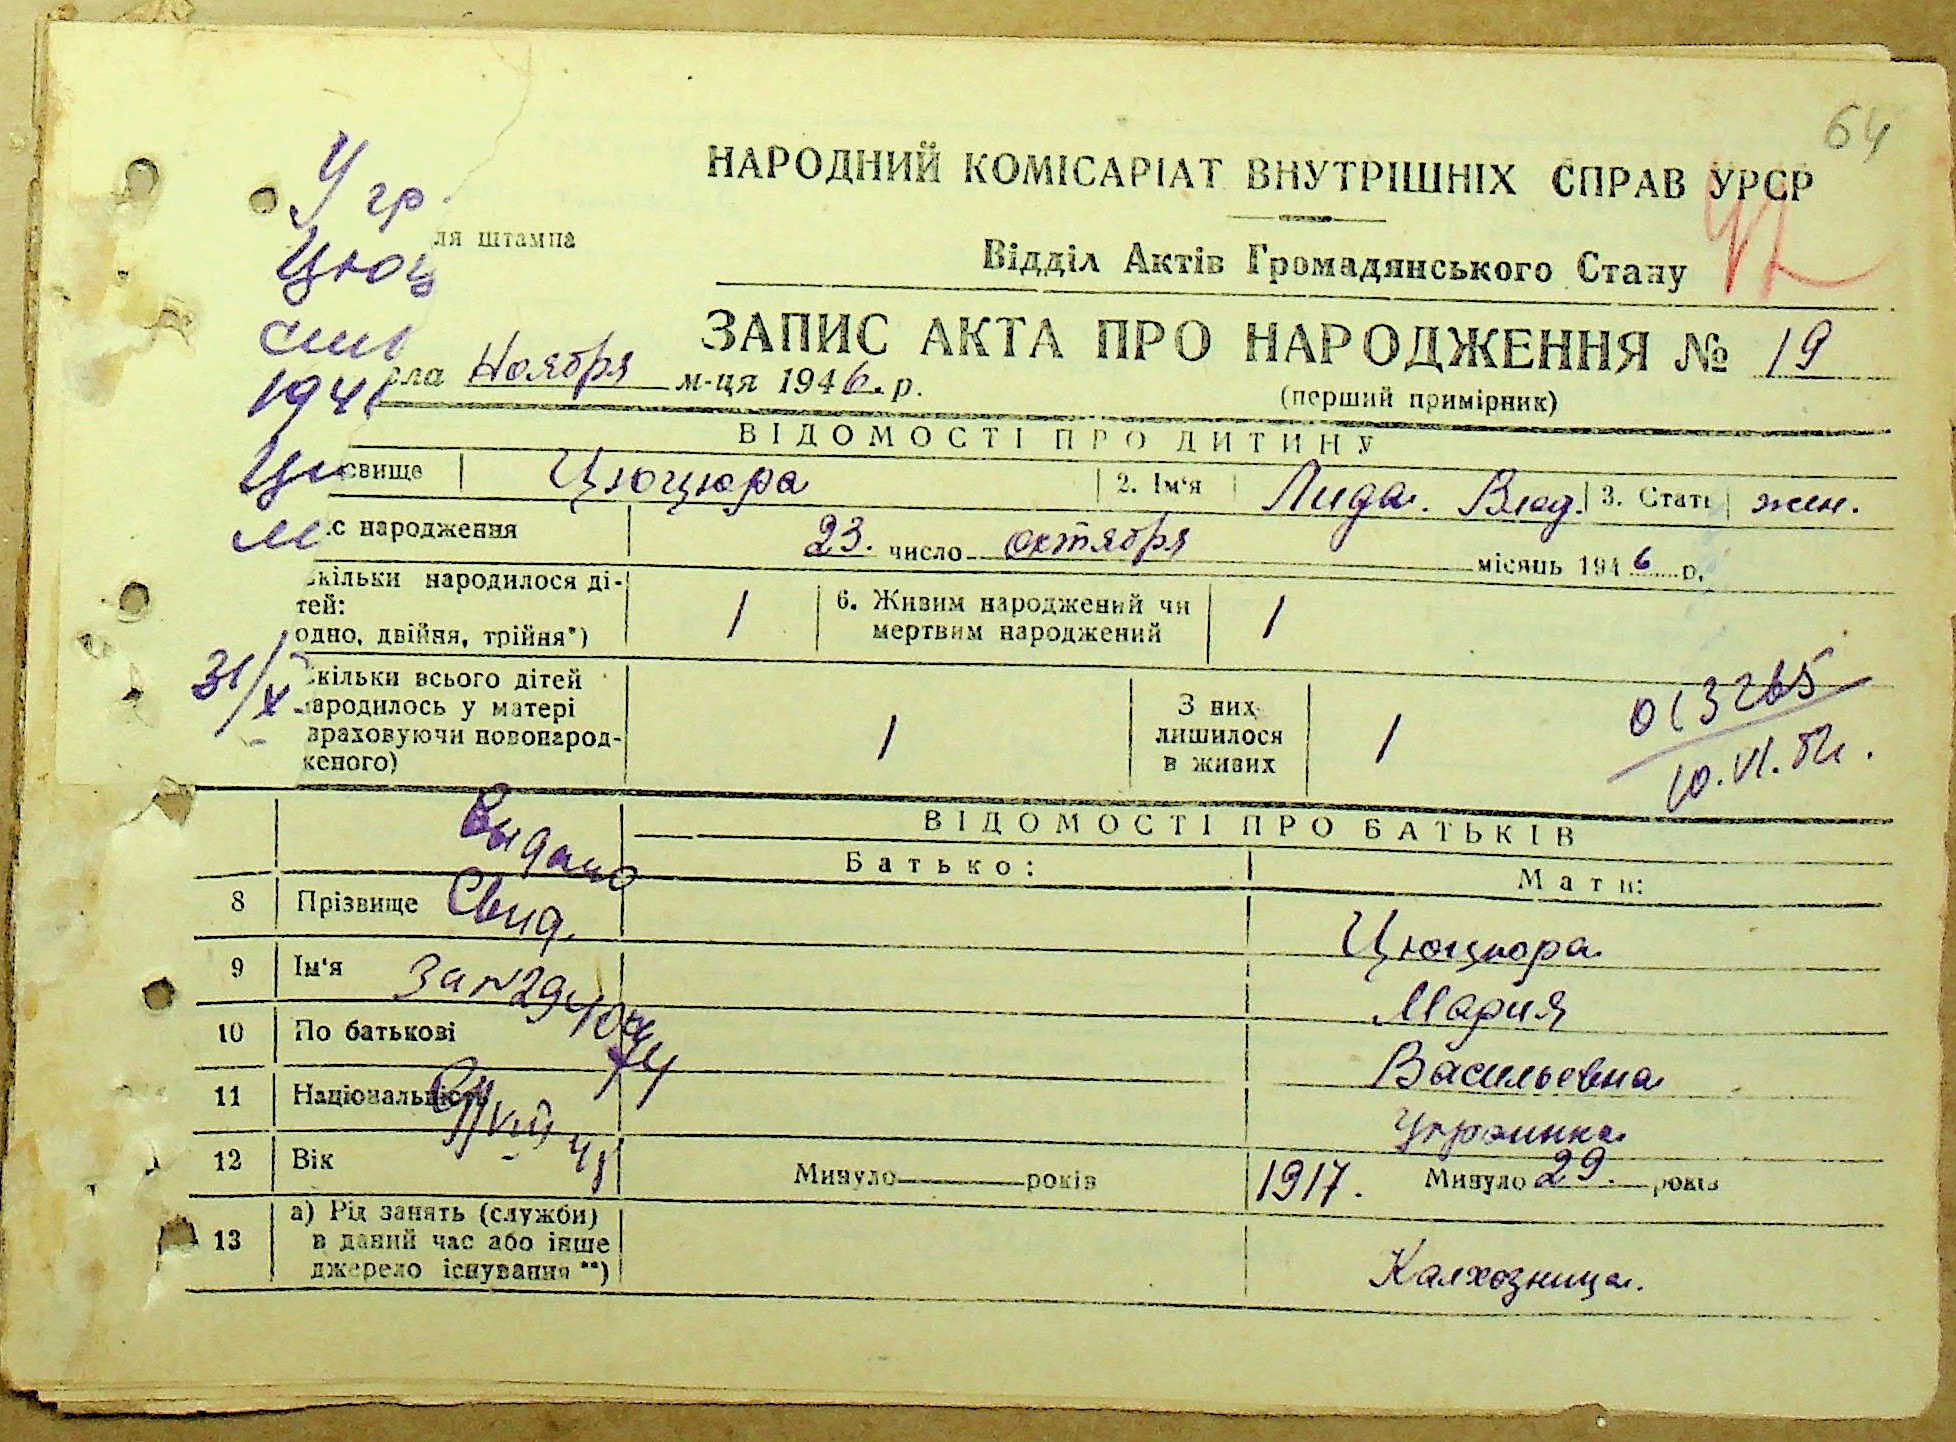 64
У гр
НАРОДНИЙ КОМІСАРІАТ ВНУТРІШНІХ СПРАВ УРСР
ля штампа
Цюц
Відділ Актів Громадянського Стану
ЗАПИС АКТА ПРО НАРОДЖЕННЯ № 19
сла Ноября м-ця 1946. р.
(перший примірник)
194
ВІДОМОСТІ ПРО ДИТИНУ
звище Цюцюра 2. Ім'я Лида. Влад. 3. Стать жен.
с народження 23. число октября місяць 1946 р.
кільки народилося ді-
тей:
одно, двійня, трійня*) 1 6. Живим народжений чи
мертвим народжений 1
31/X
кільки всього дітей
ародилось у матері
враховуючи новонарод-
женого) 1 З них
лишилося
в живих 1
013265
10.VI.
ВІДОМОСТІ ПРО БАТЬКІВ
Видано
Батько: Мати:
8 Прізвище Цюцюра
Свид.
9 Ім'я Мария
10 По батькові Васильевна
11 Національність Украинка
12 Вік Минуло років 1917. Минуло 29. років
13 а) Рід занять (служби)
в даний час або інше
джерело існування **) Калхозница.